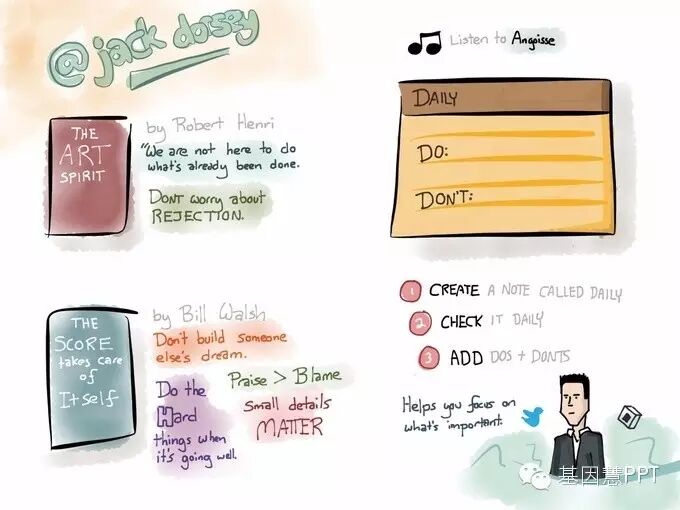 @jack dorsey
THE
ART
SPIRIT
by Robert Henri
"We are not here to do
what's already been done.
DONT worry about
REJECTION.
THE
SCORE
takes care
of
ItSelf
by Bill Walsh
Don't build someone
else's dream.
Do the
Hard
things when
it's going well.
Praise > Blame
Small details
MATTER
Listen to Angoisse
DAILY
DO:
DON'T:
1 CREATE A NOTE CALLED DAILY
2 CHECK IT DAILY
3 ADD DOS + DONTS
Helps you focus on
what's important.
基因慧PPT